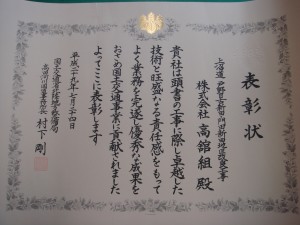 表彰状
株式会社 高舘組 殿
貴社は頭書の工事に際し卓越した
技術と旺盛なる責任感をもって
よく業務を完遂し優秀な成果を
おさめ国土交通事業に貢献されました
よってここに表彰します
平成二十九年七月二十四日
国土交通省北陸地方整備局
高田河川国道事務所長 村下 剛